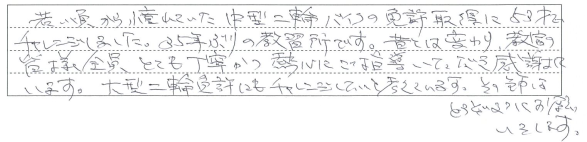 若い頃から憧れていた中型二輪バイクの免許取得に53才で
チャレンジしました。35年ぶりの教習所です。昔とは変わり、教官の
皆様全員とても丁寧かつ熱心にご指導いただき感謝して
います。大型二輪免許にもチャレンジしていと考えています。その節は
どうぞよろしくお願い
いたします。